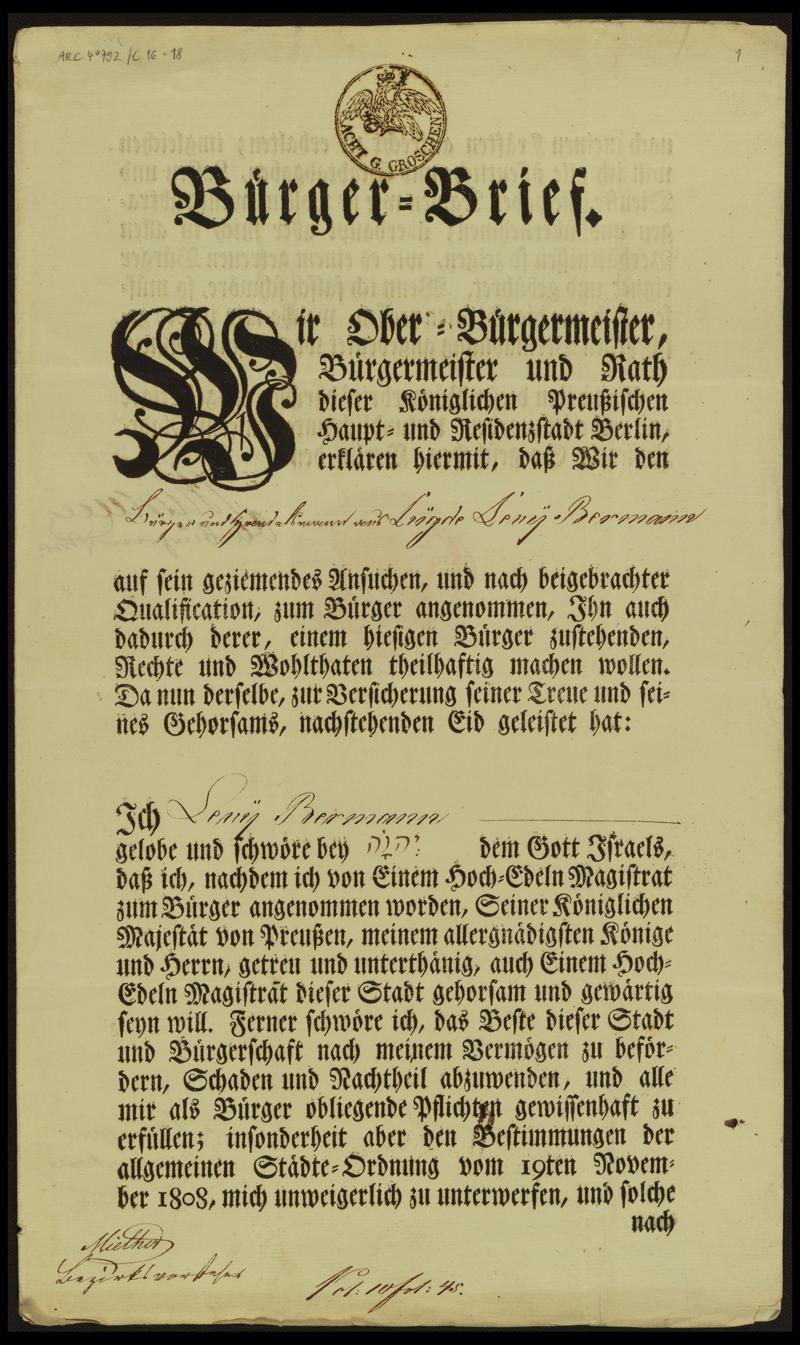 ARC 4°792 /C 16 - 18
1
ACHT G. GROSCHEN
Bürger=Brief.
Wir Ober=Bürgermeister,
Bürgermeister und Rath
dieser Königlichen Preußischen
Haupt= und Residenzstadt Berlin,
erklären hiermit, daß Wir den
Bürger und Handelsmann aus Lügde Levÿ Bermann
auf sein geziemendes Ansuchen, und nach beigebrachter
Qualification, zum Bürger angenommen, Ihn auch
dadurch derer, einem hiesigen Bürger zustehenden,
Rechte und Wohlthaten theilhaftig machen wollen.
Da nun derselbe, zur Versicherung seiner Treue und sei=
nes Gehorsams, nachstehenden Eid geleistet hat:
Ich Levÿ Bermann
gelobe und schwöre bey יהוה dem Gott Israels,
daß ich, nachdem ich von Einem Hoch=Edeln Magistrat
zum Bürger angenommen worden, Seiner Königlichen
Majestät von Preußen, meinem allergnädigsten Könige
und Herrn, getreu und unterthänig, auch Einem Hoch=
Edeln Magistrat dieser Stadt gehorsam und gewärtig
seyn will. Ferner schwöre ich, das Beste dieser Stadt
und Bürgerschaft nach meinem Vermögen zu beför=
dern, Schaden und Nachtheil abzuwenden, und alle
mir als Bürger obliegende Pflichten gewissenhaft zu
erfüllen; insonderheit aber den Bestimmungen der
allgemeinen Städte=Ordnung vom 19ten Novem=
ber 1808, mich unweigerlich zu unterwerfen, und solche
nach
Bezirksvorsteher
Vol: 10 fol: 45.